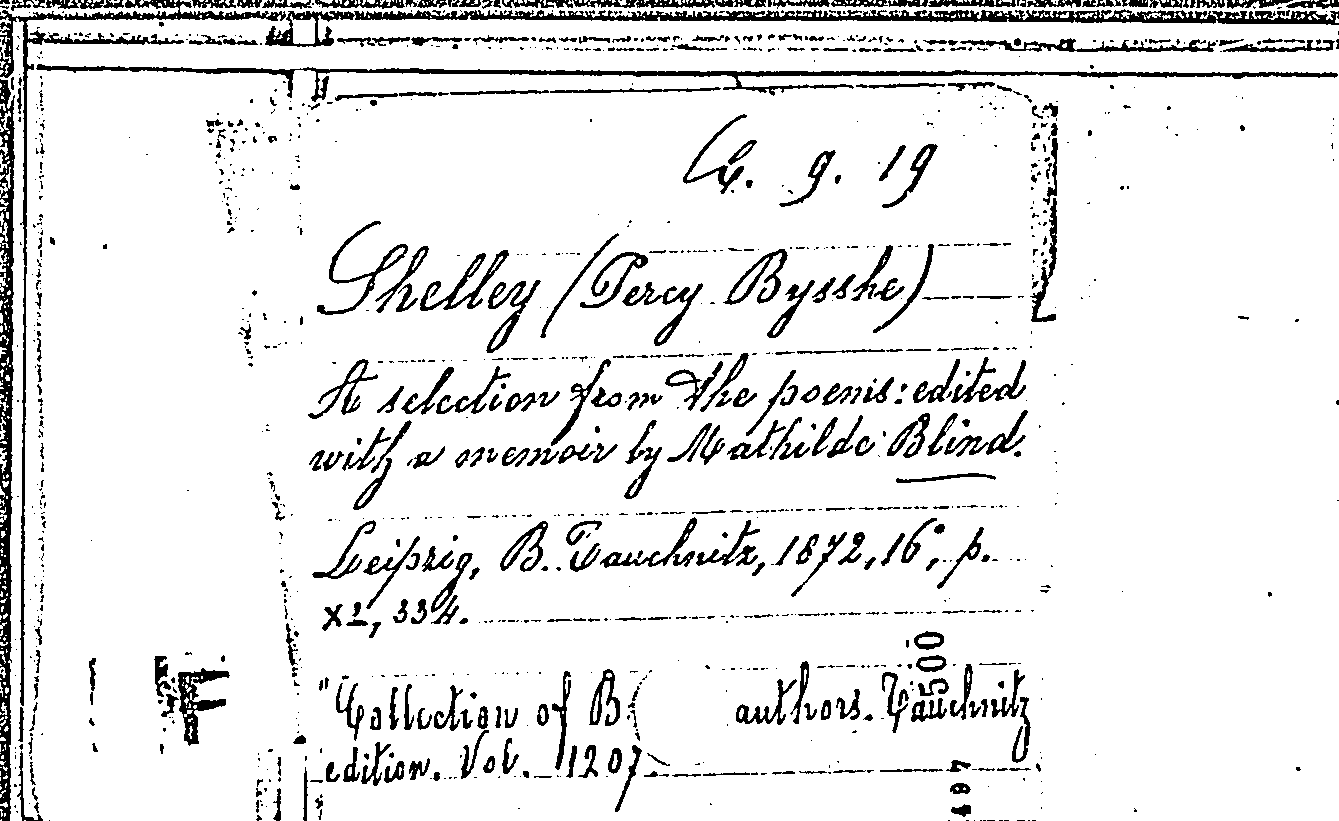 C. 9. 19
Shelley (Percy Bysshe)
A selection from the poems: edited
with a memoir by Mathilde Blind.
Leipzig, B. Tauchnitz, 1872, 16°, p.
334.
"Collection of B authors. Tauchnitz
edition. Vol. 1207.
500
497